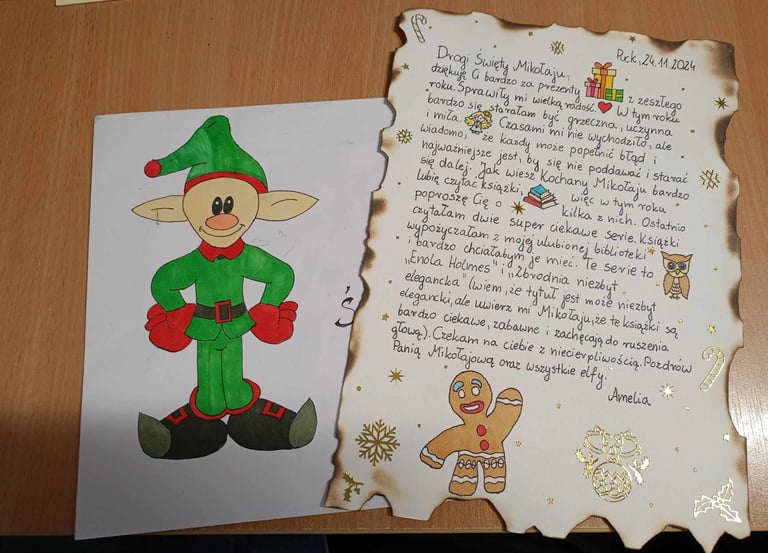 Puck, 24.11.2024
Drogi Święty Mikołaju,
dziękuję Ci bardzo za prezenty z zeszłego
roku. Sprawiły mi wielką radość. W tym roku
bardzo się starałam być grzeczna, uczynna
i miła. Czasami mi nie wychodziło, ale
wiadomo, że każdy może popełnić błąd i
najważniejsze jest, by się nie poddawać i starać
się dalej. Jak wiesz Kochany Mikołaju bardzo
lubię czytać książki, więc w tym roku
poproszę Cię o kilka z nich. Ostatnio
czytałam dwie super ciekawe serie. Książki
wypożyczałam z mojej ulubionej biblioteki
i bardzo chciałabym je mieć. Te serie to
„Enola Holmes" i „Zbrodnia niezbyt
elegancka" (wiem, że tytuł jest może niezbyt
elegancki, ale uwierz mi Mikołaju, że te książki są
bardzo ciekawe, zabawne i zachęcają do ruszenia
głową). Czekam na ciebie z niecierpliwością. Pozdrów
Panią Mikołajową oraz wszystkie elfy.
Amelia
Ś